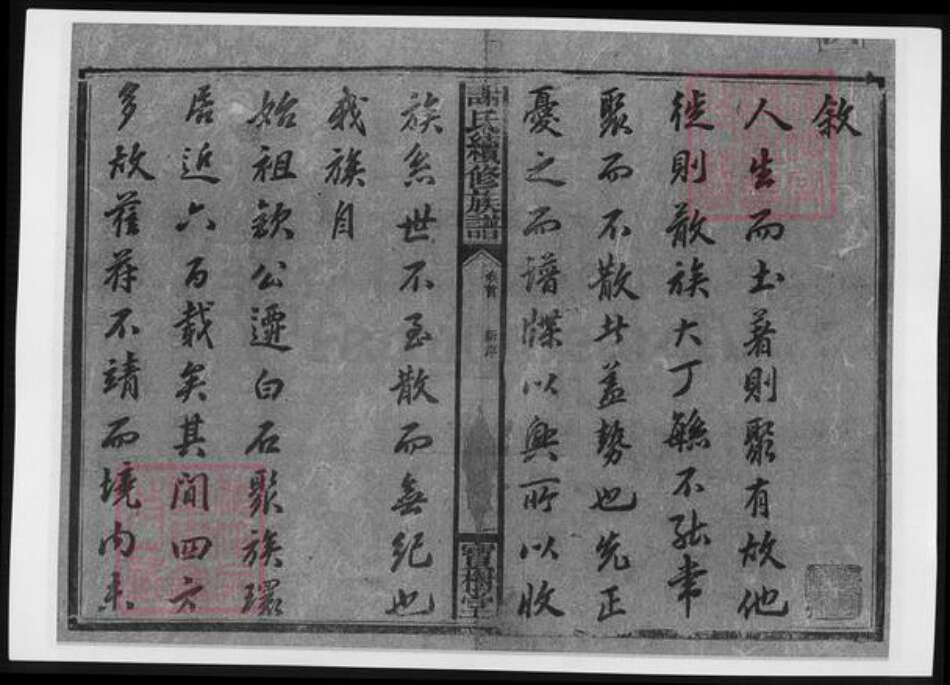 敘
人生而土著則聚有故他
徙則散族大丁繇不能常
聚而不散此蓋勢也先正
憂之而譜牒以興所以收
謝氏續修族譜
卷首 新序
寶樹堂
族系世不至散而無紀也
我族自
始祖欽公遷白石聚族環
居近六百載矣其間四方
多故萑苻不靖而境內未